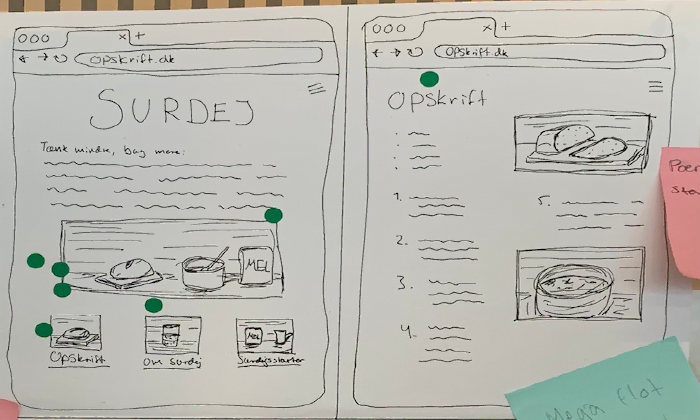 000
x +
opskrift.dk
SURDEJ
Tænk mindre, bag mere:
MEL
Opskrift
Om surdej
MEL
Surdejsstarter
000
x +
opskrift.dk
Opskrift
1.
2.
3.
4.
5.
Mega flot